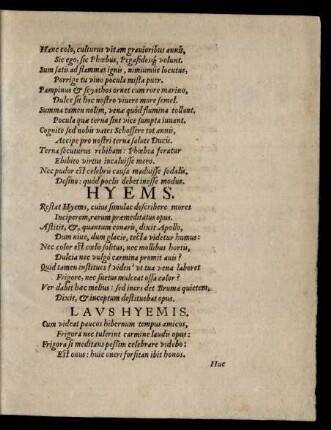 Hanc colo, culturus vitam gravioribus annis,
Sic ego, sic Phœbus, Pegasidesq; volunt.
Sum satis ad flammas ignis, nimiumue locutus,
Porrige tu vino pocula mista puer.
Pampinus & scyathos ornet cum rore marino,
Dulce sit hoc nostro vivere more semel.
Summa tamen nolim, venæ quod flumina tollant,
Pocula quæ terna sint vice sumpta iuvant.
Cognite sed nobis vates Schossere tot annis,
Accipe pro nostri terna salute Ducis.
Terna secuturus rebibam: Phœbea feratur
Ebibito virtus incaluisse mero.
Nec pudor est celebris causa maduisse sodalis,
Desino: quod pocli debet inesse modus.
HYEMS.
Restat Hyems, cuius simulac describere mores
Inciperem, rarum præmeditatus opus.
Astitit, &, quantum conaris, dixit Apollo,
Dum nive, dum glacie, tecta videtur humus:
Nec color est cœlo solitus, nec mollibus hortis,
Dulcia nec vulgò carmina promit avis?
Quid tamen institues? viden' ut tua vena laborat
Frigore, nec suetus maleat ossa calor?
Ver dabit hæc melius: sed incrs det Bruma quietem,
Dixit, & inceptum destituebat opus.
LAVS HYEMIS.
Cum videat paucos hibernum tempus amicos,
Frigora nec tulerint carmine laudis opus:
Frigora si meditans possim celebrare videbo:
Est onus: huic oneri forsitan ibit honos.
Huc